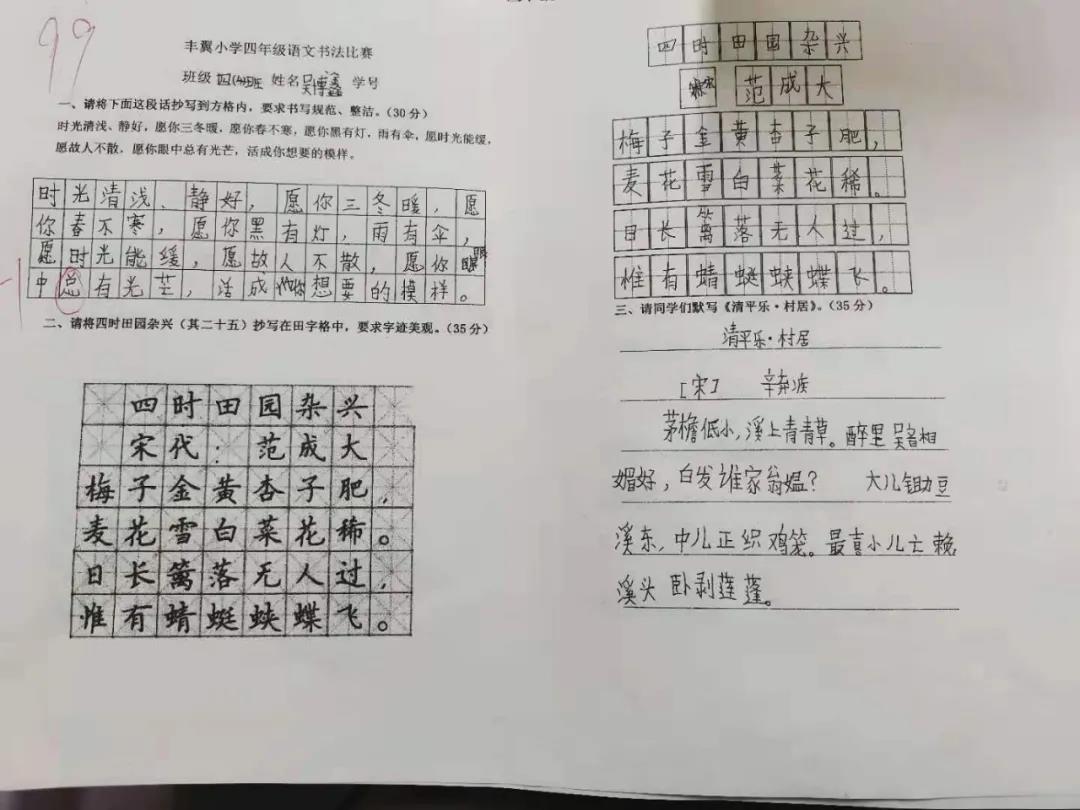 99
丰翼小学四年级语文书法比赛
班级 姓名吴博鑫 学号
一、请将下面这段话抄写到方格内，要求书写规范、整洁。（30分）
时光清浅、静好，愿你三冬暖，愿你春不寒，愿你黑有灯，雨有伞，愿时光能缓，
愿故人不散，愿你眼中总有光芒，活成你想要的模样。
时光清浅、静好，愿你三冬暖，愿
你春不寒，愿你黑有灯，雨有伞，
愿时光能缓，愿故人不散，愿你眼
-1
中总有光芒，活成你想要的模样。
二、请将四时田园杂兴（其二十五）抄写在田字格中，要求字迹美观。（35分）
四时田园杂兴
宋代：范成大
梅子金黄杏子肥，
麦花雪白菜花稀。
日长篱落无人过，
惟有蜻蜓蛱蝶飞。
四时田园杂兴
范成大
梅子金黄杏子肥，
麦花雪白菜花稀。
日长篱落无人过，
惟有蜻蜓蛱蝶飞。
三、请同学们默写《清平乐·村居》。（35分）
清平乐·村居
[宋] 辛弃疾
茅檐低小，溪上青青草。醉里吴音相
媚好，白发谁家翁媪？ 大儿锄豆
溪东，中儿正织鸡笼。最喜小儿亡赖
溪头卧剥莲蓬。